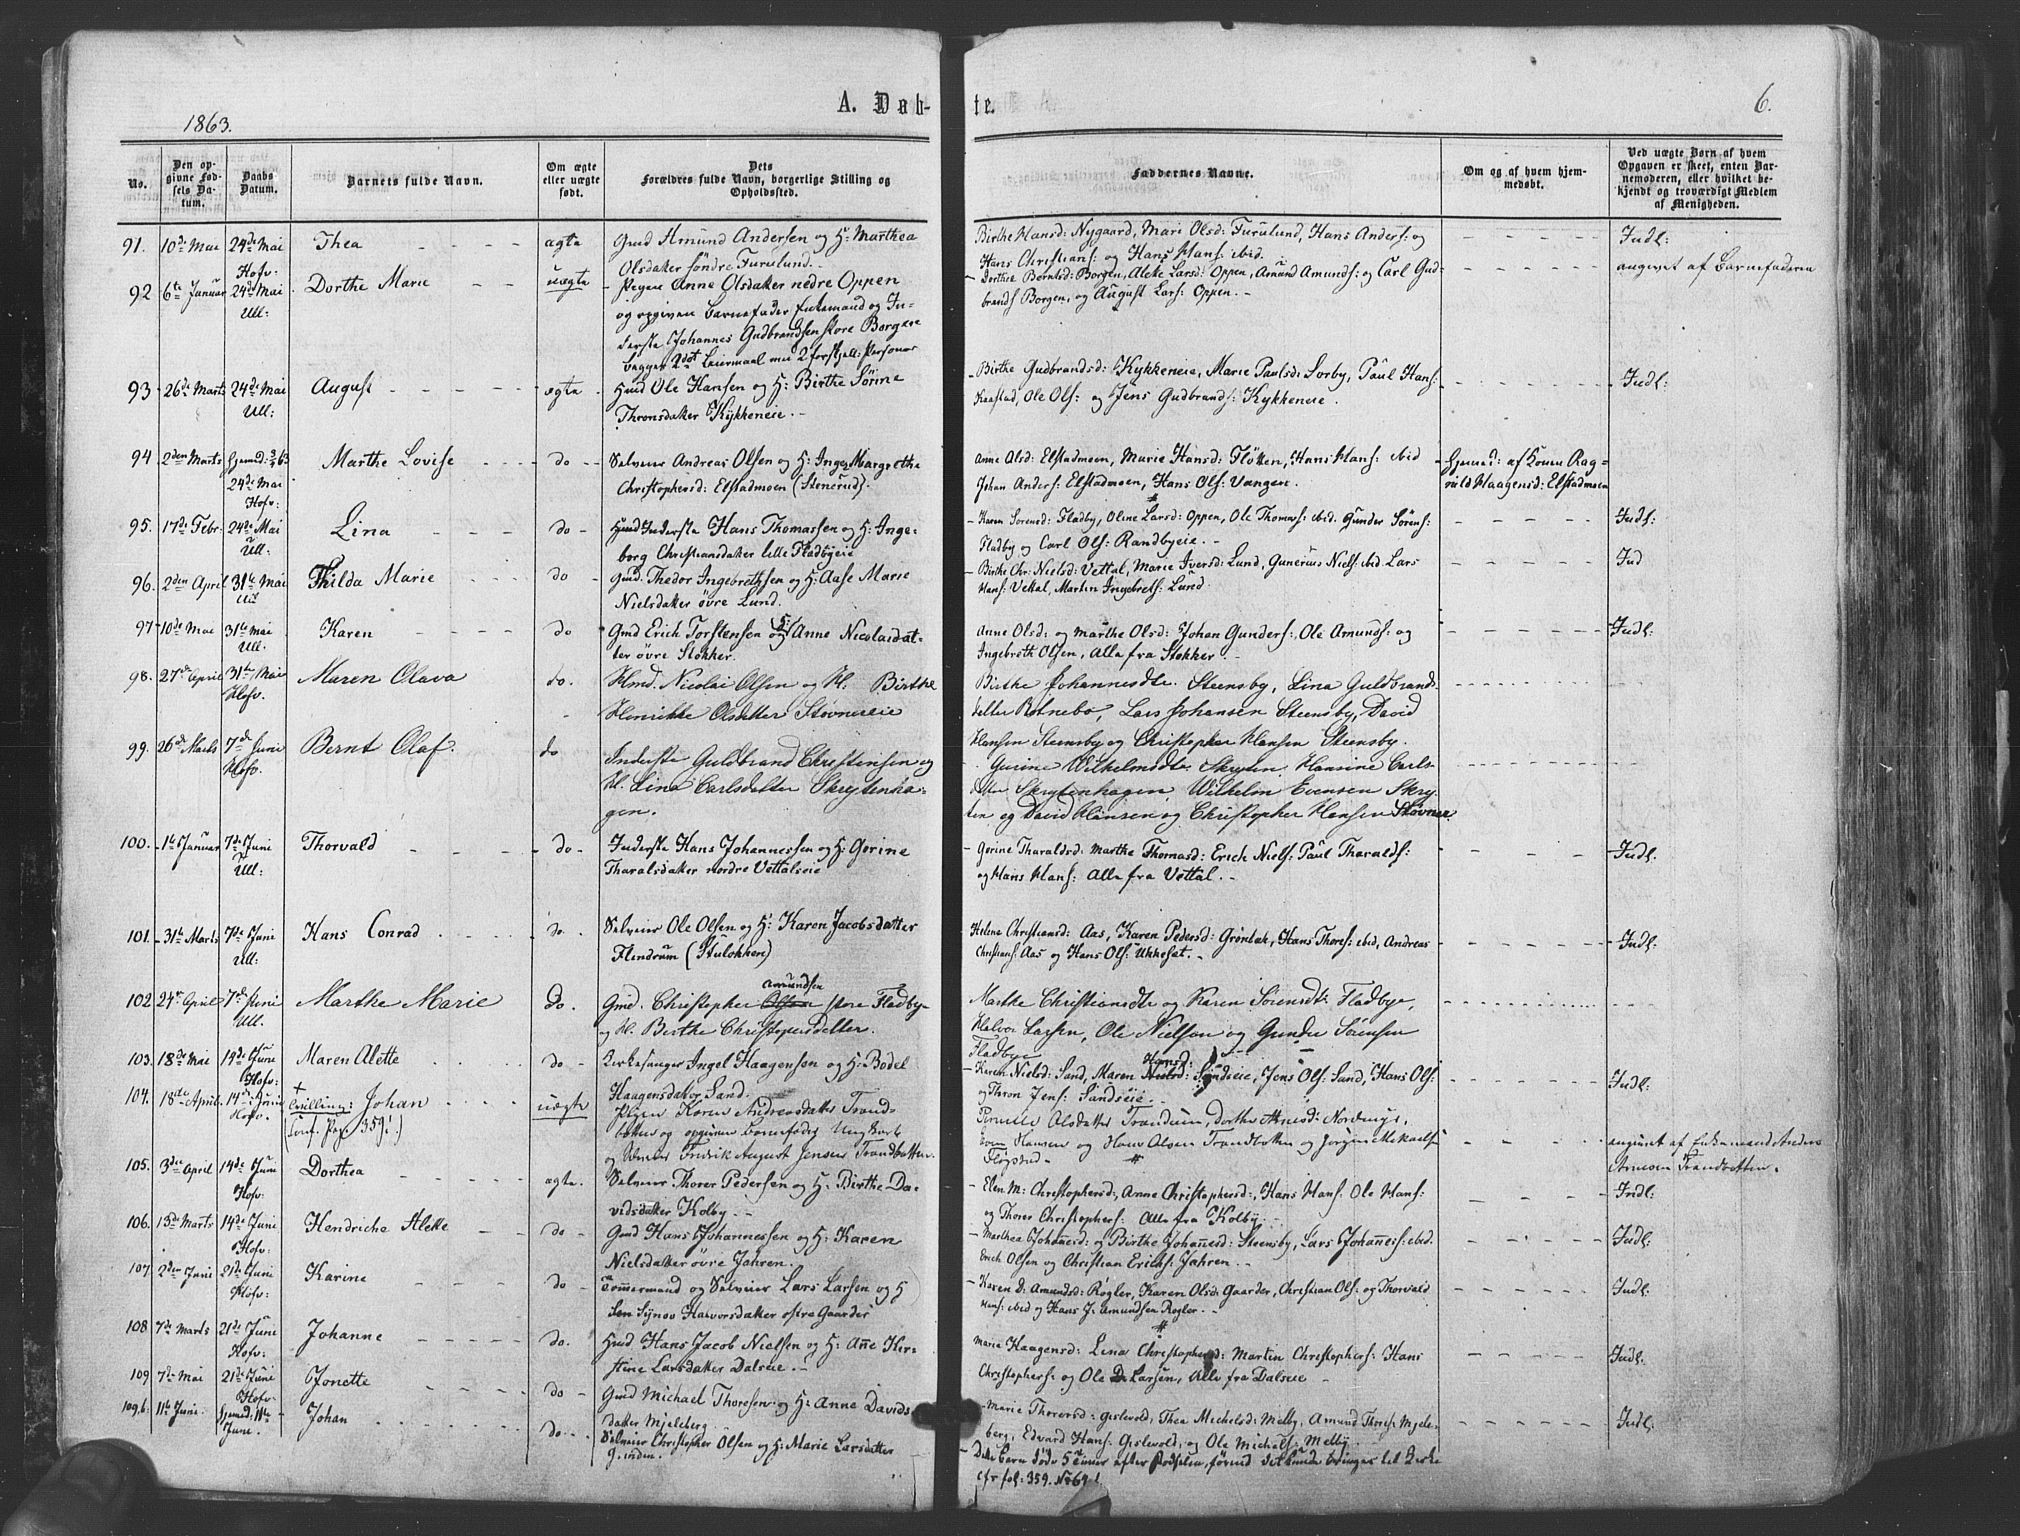 A. Døb-
te.
6.
1863.
No.
Den op-
givne Fød-
sels Da-
tum.
Daabs
Datum.
Barnets fulde Navn.
Om ægte
eller uægte
født.
Dets
Forældres fulde Navn, borgerlige Stilling og
Opholdssted.
Faddernes Navne.
Om og af hvem hjem-
medøbt.
Ved uægte Børn af hvem
Opgaven er skeet, enten Bar-
nemoderen, eller hvilket be-
kjendt og troværdigt Medlem
af Menigheden.
91. 10de Mai 24de Mai Thea ægte Gmd Amund Andersen og H: Marthea
Hofv: Olsdatter søndre Furulund.
Birthe Hansd: Nygaard, Mari Olsd: Furulund, Hans Anders: og
Hans Christians: og Hans Hans: ibid.
Indl:
92 6te Januar 24de Mai Dorthe Marie uægte Pigen Anne Olsdatter nedre Oppen
Ull: og opgiven Barnefader Enkemand og In-
derste Johannes Gudbrandsen store Borgen
begges 2det Leiermaal med 2 forskjell: Personer
Dorthe Borntsd: Borgen, Aleke Larsd: Oppen, Amund Amunds: og Carl Gud-
brands Borgen, og August Lars: Oppen.
angivet af Barnefaderen
93 26de Marts 24de Mai August ægte Hmd Ole Hansen og H: Birthe Sönne
Ull: Thronsdatter Kykkeneie.
Birthe Gudbrandsd: Kykkeneie, Marie Paulsd: Sorby, Paul Hans:
Kaastad, Ole Ols: og Jens Gudbrands: Kykkeneie.
Indl:
94 2den Marts Hjemd: 3/3 63 Marthe Lovise do Selveier Andreas Olsen og H: Inger Margrethe
24de Mai Christophersd: Elstadmoen (Stenerud).
Hofv:
Anne Olsd: Elstadmoen, Marie Hansd: Flötten, Hans Hans: ibid
Johan Anders: Elstadmoen, Hans Ols: Vangen.
Hjemd: af Konen Rag-
nild Haagensd: Elstadmoen
95. 17de Febr: 24de Mai Lina do Hmd Inderste Hans Thomassen og H: Inge-
Ull: borg Christiansdatter lille Fladbyeie
Karen Sorensd: Fladby, Oline Larsd: Oppen, Ole Thomas: ibid. Gunder Sörens:
Fladby og Carl Ols: Randbyeie.
Indl:
96. 2den April 31te Mai Thilda Marie do Gmd. Thedor Ingebrethsen og H: Aase Marie
Ull Nielsdatter øvre Lund.
Birthe Chr: Nielsd: Vettal, Marie Iversd: Lund, Gunerius Niels: ibid Lars
Hans: Vettal, Martin Ingebreths: Lund.
Ind
97 10de Mai 31te Mai Karen do Gmd Erich Torstensen og H: Anne Nicolaidat-
Ull. ter øvre Stokker.
Anne Olsd: og Marthe Olsd: Johan Gunders:, Ole Amunds: og
Ingebreth Olsen, Alle fra Stokker.
Indl:
98. 27de April 31te Mai Maren Olava do. Hmd. Nicolai Olsen og H. Birthe
Hofv. Henrikke Olsdatter Stovnereie
Birthe Johannesdtr. Steensby, Lina Guldbrands-
datter Botnebo, Lars Johansen Steensby, David
Hansen Steensby og Christopher Hansen Steensby.
99. 26de Marts 7de Juni Bernt Olaf. do Inderste Guldbrand Christensen og
Hofv. H. Lina Carlsdatter Skrytenha-
gen.
Gurine Wilhelmsdtr. Skryten, Hansine Carls-
datter Skrytenhagen, Wilhelm Evensen Skry-
ten og David Hansen og Christopher Hansen Stovner.
100. 1te Januar 7de Juni Thorvald do Inderste Hans Johannessen og H: Gorine
Ull: Tharalsdatter nordre Vettalseie
Gorine Tharaldsd: Marthe Thomasd: Erich Niels: Paul Tharalds:
og Hans Hans: Alle fra Vettal.
Indl.
101. 31te Marts 7de Juni Hans Conrad do. Selveier Ole Olsen og H: Karen Jacobsdatter
Ull: Flendrum (Stulokken)
Helene Christiansd: Aas, Karen Pedersd: Grönbæk, Hans Thores: ibid, Andreas
Christians: Aas og Hans Ols: Ukkesat.
Indl:
102 24de April 7de Juni Marthe Marie Do. Gmd. Christopher Olsen Amundsen store Fladbye
Ull. og H. Birthe Christophersdatter.
Marthe Christiansdtr og Karen Sörensdtr: Fladbye,
Halvor Larsen, Ole Nielsen og Gunder Sörensen
Fladbye
103. 18de Mai 14de Juni Maren Alette do Kirkesanger Ingel Haagensen og H: Bodel
Hofv: Haagensdatter Sand.
Karen Nielsd: Sand, Maren Nielsd: Hansd: Sandseie, Jens Ols: Sand, Hans Ols:
og Thron Jens: Sandseie.
Indl:
104. 18de April 14de Juni Tvilling: Johan uægte Pigen Karen Andreasdatter Trand-
Hofv. (Conf. Pag. 359!) botten og opgiven Barnefader Ungkarl
og Selveier Fredrik August Jensen Trandbotten.
Pernille Olsdatter Trandum, Dorthe Arnesd: Nordmyr,
Even Hansen og Hans Olsen Trandbotten og Jörgen Mikaels:
Flogstad
angivet af Enkemand Anders
Arnesen Trandbotten.
105. 3die April 14de Juni Dorthea ægte. Selveier Thorer Pedersen og H: Birthe Da-
Hofv: vidsdatter Kolby.
Elen M: Christophersd:, Anne Christophersd:, Hans Hans: Ole Hans:
og Thorer Christophers: Alle fra Kolby.
Indl:
106. 13de Marts 14de Juni Hendriche Alette do Gmd Hans Johannessen og H: Karen
Hofv. Nielsdatter øvre Jahren.
Marthea Johanesd: og Birthe Johanesd: Steensby, Lars Johanes: ibid.
Erich Olsen og Christian Erichs: Jahren.
Indl:
107. 2den Juni 21de Juni Karine do Tömmermand og Selveier Lars Larsen og H
Hofv. Sen Synov Halvorsdatter østre Gaarder
Karen D: Amundsd: Rogler, Karen Olsd: Gaarder, Christian Ols: og Thorvald
Hans: ibid og Hans J. Amundsen Rogler.
Indl:
108 7de Marts 21de Juni Johanne do. Hmd Hans Jacob Nielsen og H: Anne Kir-
Hofv: stine Larsdatter Dalseie.
Marie Haagensd: Lina Christophersd: Martin Christophers: Hans
Christophers: og Ole D. Larsen, Alle fra Dalseie
Indl:
109 7de Mai 21de Juni Jonette do Gmd Michael Thoresen og H: Anne Davids-
Hofv: datter Mjeleberg.
Marie Thorersd: Gislevold, Thea Michelsd: Melby, Amund Thores: Mjele-
berg, Edvard Hans: Gislevold, og Ole Michels: Melby
Indl:
109,b. 11te Juni. Hjemed: 11te Johan do. Selveier Christopher Olsen og H: Marie Larsdatter
Juni. Grinden.
Dette barn døde 5 Timer efter Fødselen, førend det kunde bringes til Kirke
cfr fol: 359. No 64!